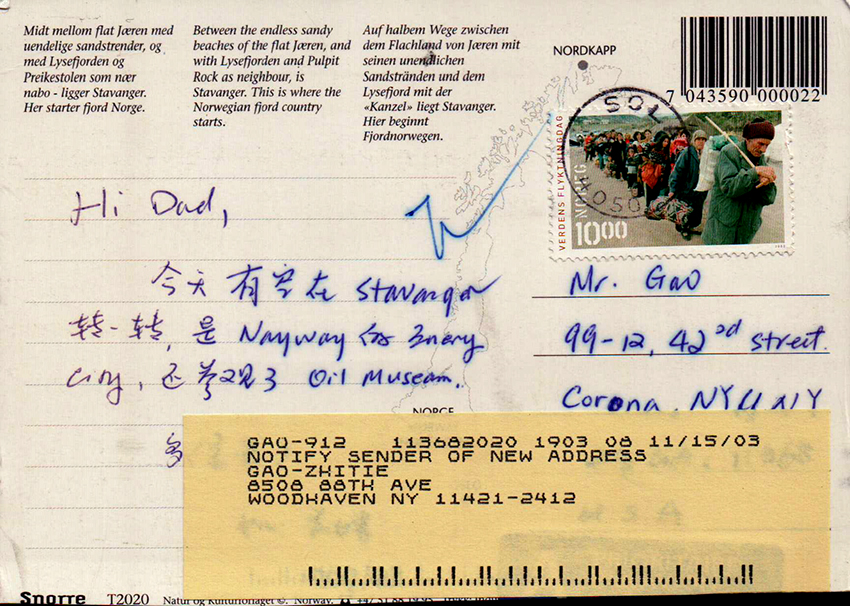 Midt mellom flat Jæren med
uendelige sandstrender, og
med Lysefjorden og
Preikestolen som nær
nabo - ligger Stavanger.
Her starter fjord Norge.
Between the endless sandy
beaches of the flat Jæren, and
with Lysefjorden and Pulpit
Rock as neighbour, is
Stavanger. This is where the
Norwegian fjord country
starts.
Auf halbem Wege zwischen
dem Flachland von Jæren mit
seinen unendlichen
Sandstränden und dem
Lysefjord mit der
«Kanzel» liegt Stavanger.
Hier beginnt
Fjordnorwegen.
NORDKAPP
7 043590 000022
SOL
4050
VERDENS FLYKTNINGDAG
NOREG
10.00
Hi Dad,
今天有空在 Stavanger
转一转, 是 Nayway 的 Enery
City, 还参观了 Oil Museam.
多
Mr. Gao
99-12, 42nd street.
Corona, NY NY
NORGE
GAO-912 113682020 1903 08 11/15/03
NOTIFY SENDER OF NEW ADDRESS
GAO-ZHITIE
8508 88TH AVE
WOODHAVEN NY 11421-2412
U S A
Snorre T2020 Natur og Kulturforlaget ©. Norway.